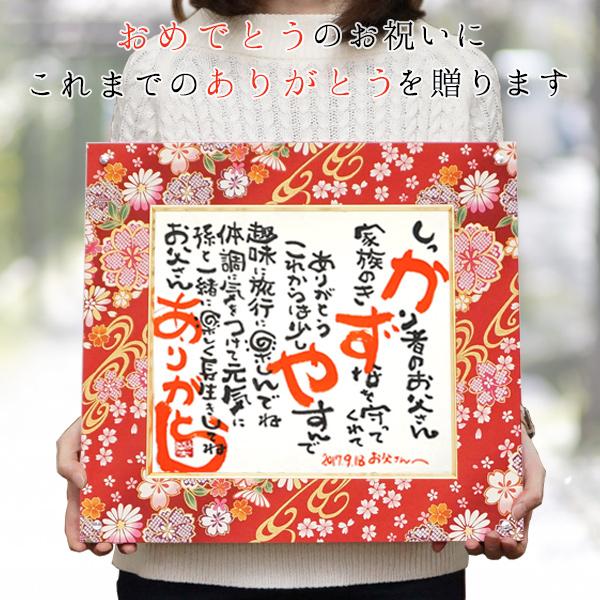 おめでとうのお祝いに
これまでのありがとうを贈ります
しっかり者のお父さん
家族のきずなを守ってくれて
ありがとう
これからは少しやすんで
趣味に旅行に楽しんでね
体調に気をつけて元気に
孫と一緒に楽しく長生きしてね
お父さんありがとう
2017.9.18 お父さんへ